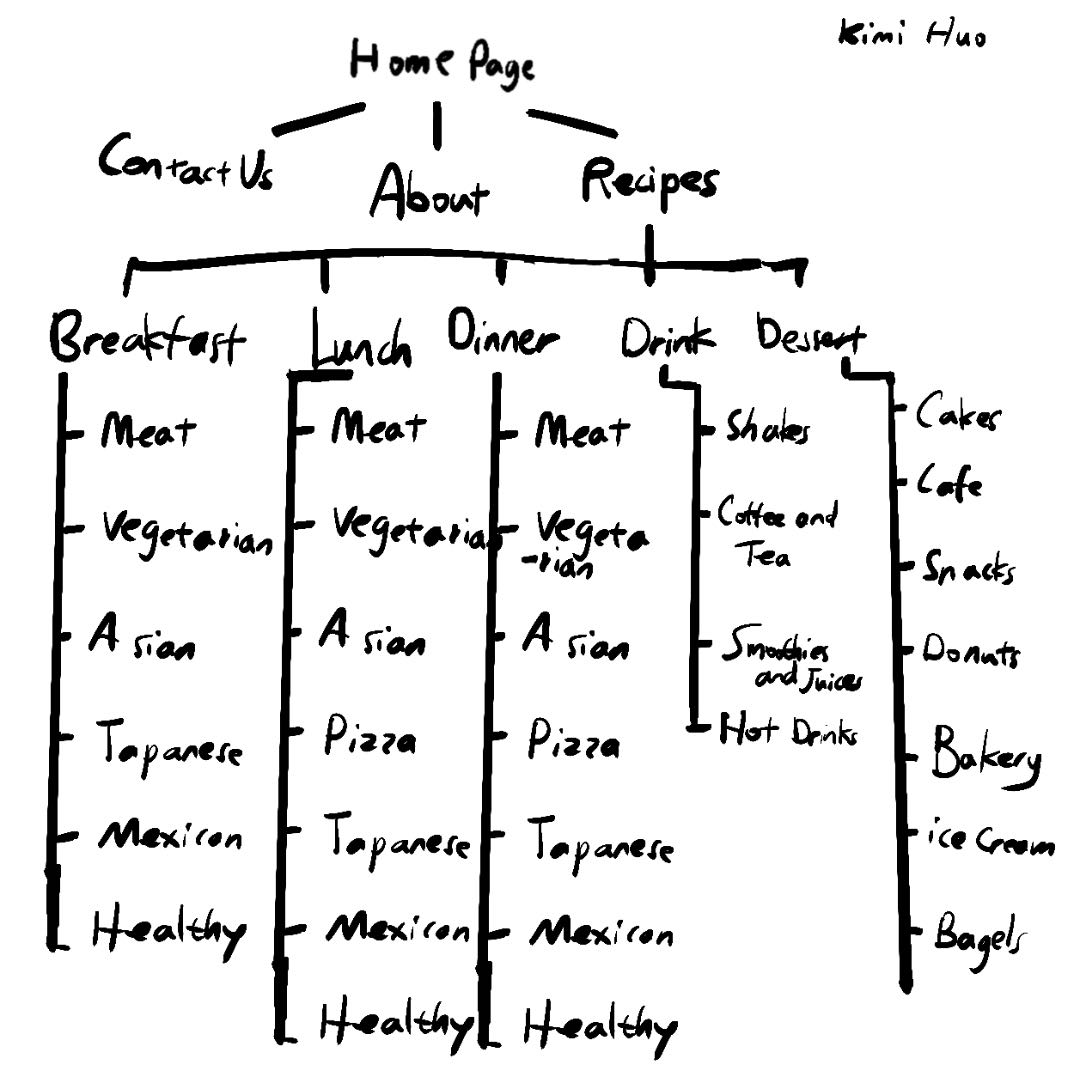 Kimi Huo
Home Page
Contact Us
About
Recipes
Breakfast
Meat
Vegetarian
Asian
Tapanese
Mexican
Healthy
Lunch
Meat
Vegetarian
Asian
Pizza
Tapanese
Mexican
Healthy
Dinner
Meat
Vegeta
-rian
Asian
Pizza
Tapanese
Mexican
Healthy
Drink
Shakes
Coffee and
Tea
Smoothies
and Juices
Hot Drinks
Dessert
Cakes
Cafe
Snacks
Donuts
Bakery
ice Cream
Bagels